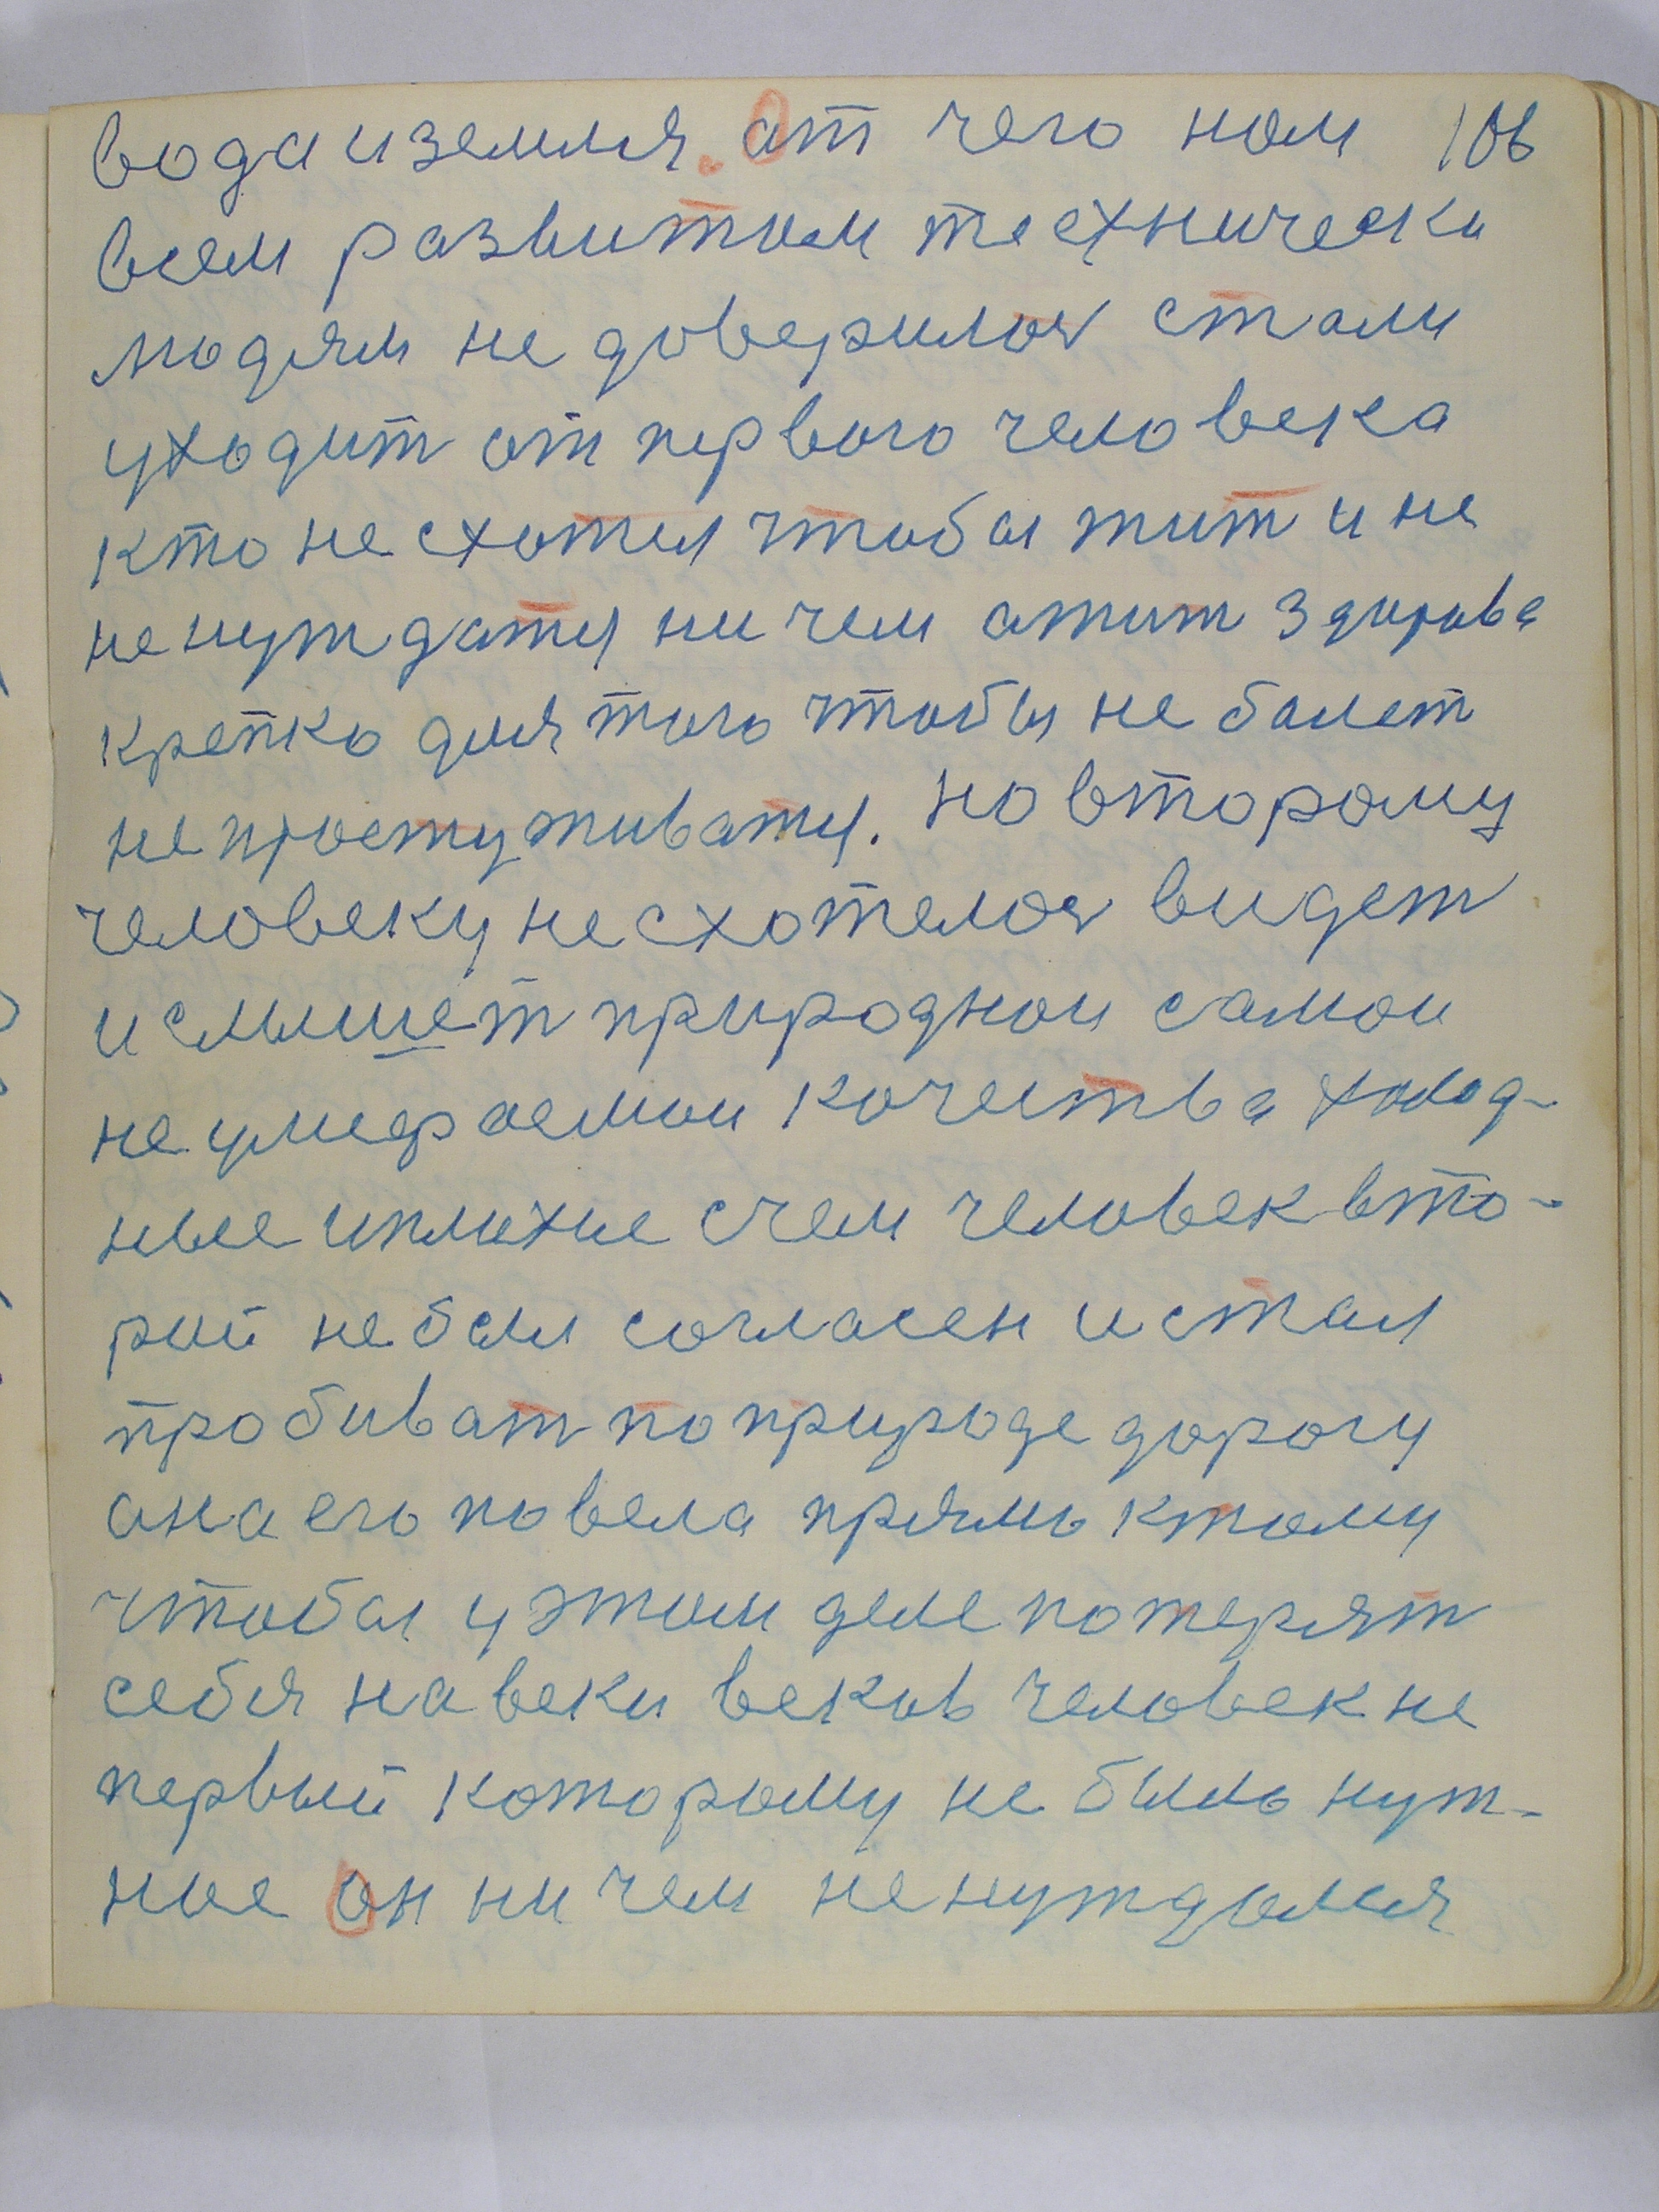 вода и земля. От чего нам 106
всем развитым технически
людям не доверилос стали
уходит от первого человека
кто не схотел чтобы жит и не
не нуждатся ни чем а жит здорова
крепко для того чтобы не болет
не простуживатся. но второму
человеку не схотелос видет
и слышет природнои самои
не умераемои качества холод-
ные и плохие с чем человек вто-
рой не был согласен и стал
пробиват по природе дорогу
она его повела прямо к тому
чтобы у этом деле потерят
себя на веки веков человек не
первый которому не было нуж-
ное Он ни чем не нуждался